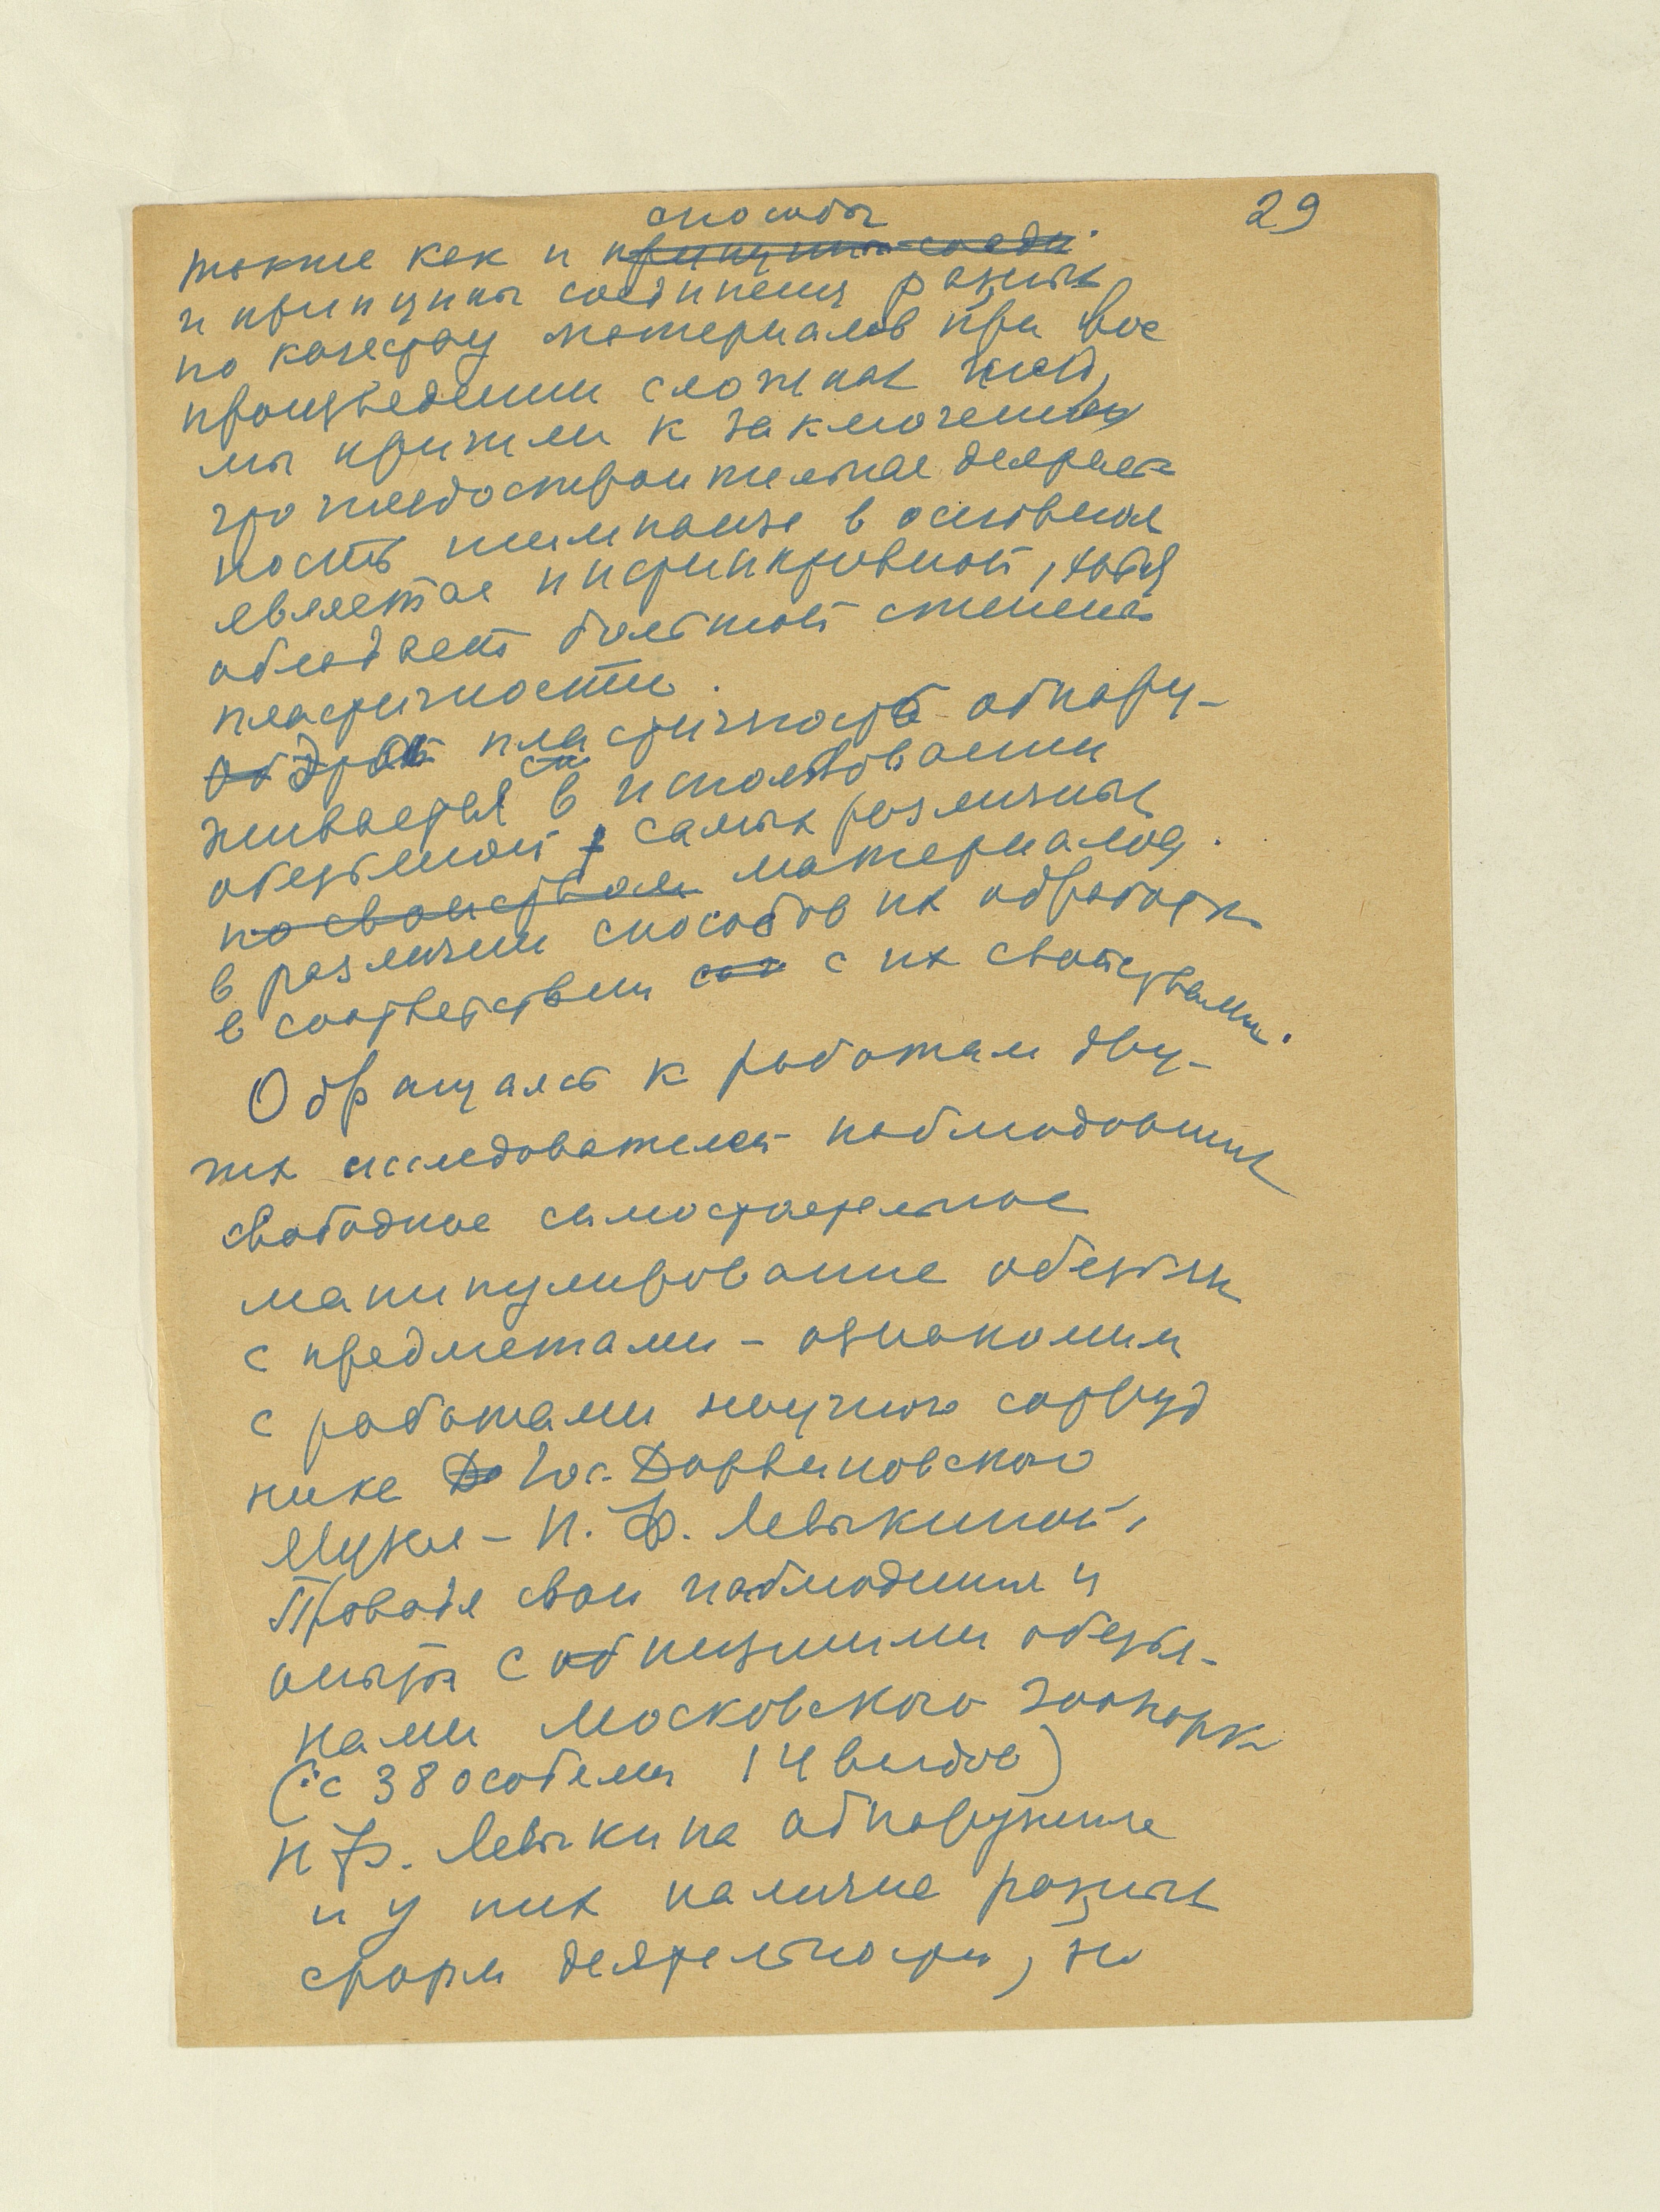 29
способы
также как и принципы соеди
и принципы соединения разных
по качеству материалов при вос
произведении сложных гнезд,
мы пришли к заключению
что гнездостроительная деятель
ность шимпанзе в основном
является инстинктивной, хотя
обладает большой степенью
пластичности.
Эта пластичность обнару-
живается в использовании
обезьяной самых различных
по свойствам материалов
в различии способов их обработки
в соответствии соо с их свойствами.
Обращаясь к работам дру-
гих исследователей наблюдавших
свободное самостоятельное
манипулирование обезьян
с предметами – ознакомим
с работами научного сотруд
ника До Гос. Дарвиновского
Музея – Н. Ф. Левыкиной,
Проводя свои наблюдения и
опыты с об низшими обезья-
нами Московского Зоопарка
(с 38 особями 14 видов)
Н Ф. Левыкина обнаружила
и у них наличие разных
форм деятельности, но